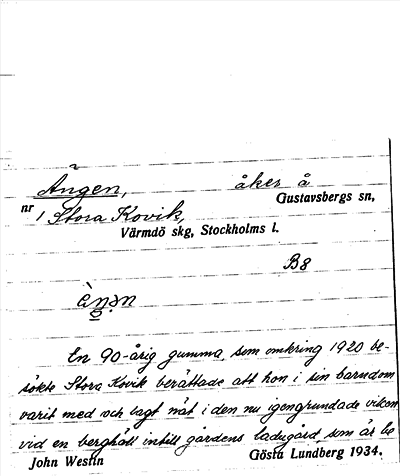 Ängen, åker å
Gustavsbergs sn,
nr 1 Stora Kovik,
Värmdö skg, Stockholms l.
B8
En 90-årig gumma, som omkring 1920 be-
sökte Stora Kovik berättade att hon i sin barndom
varit med och lagt nät i den nu igengrundade viken
vid en berghäll intill gårdens ladugård, som är be
John Westin Gösta Lundberg 1934.